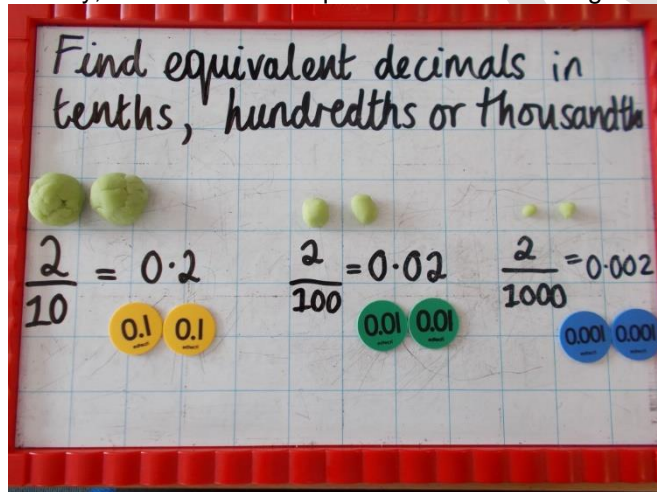 Find equivalent decimals in
tenths, hundredths or thousandths
2/10 = 0·2
2/100 = 0·02
2/1000 = 0·002
0.1 0.1
0.01 0.01
0.001 0.001